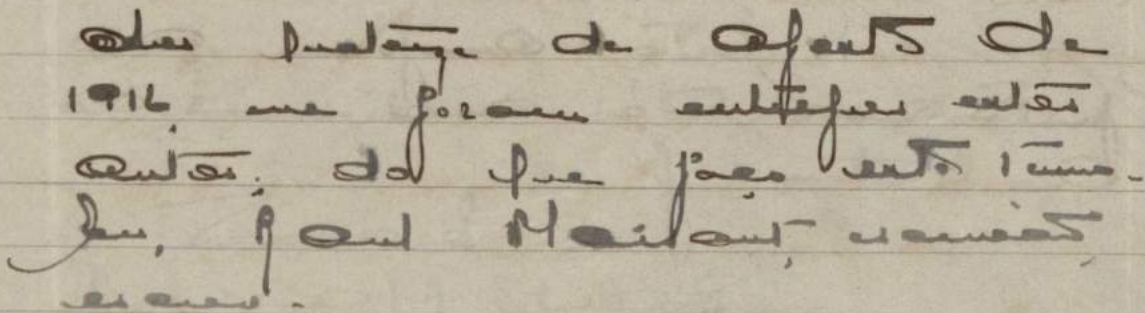 Aos quatorze de Agosto de
1916, me foram entregues estes
autos; do que faço este termo.
Eu, Raul escrivão,
escrevi.